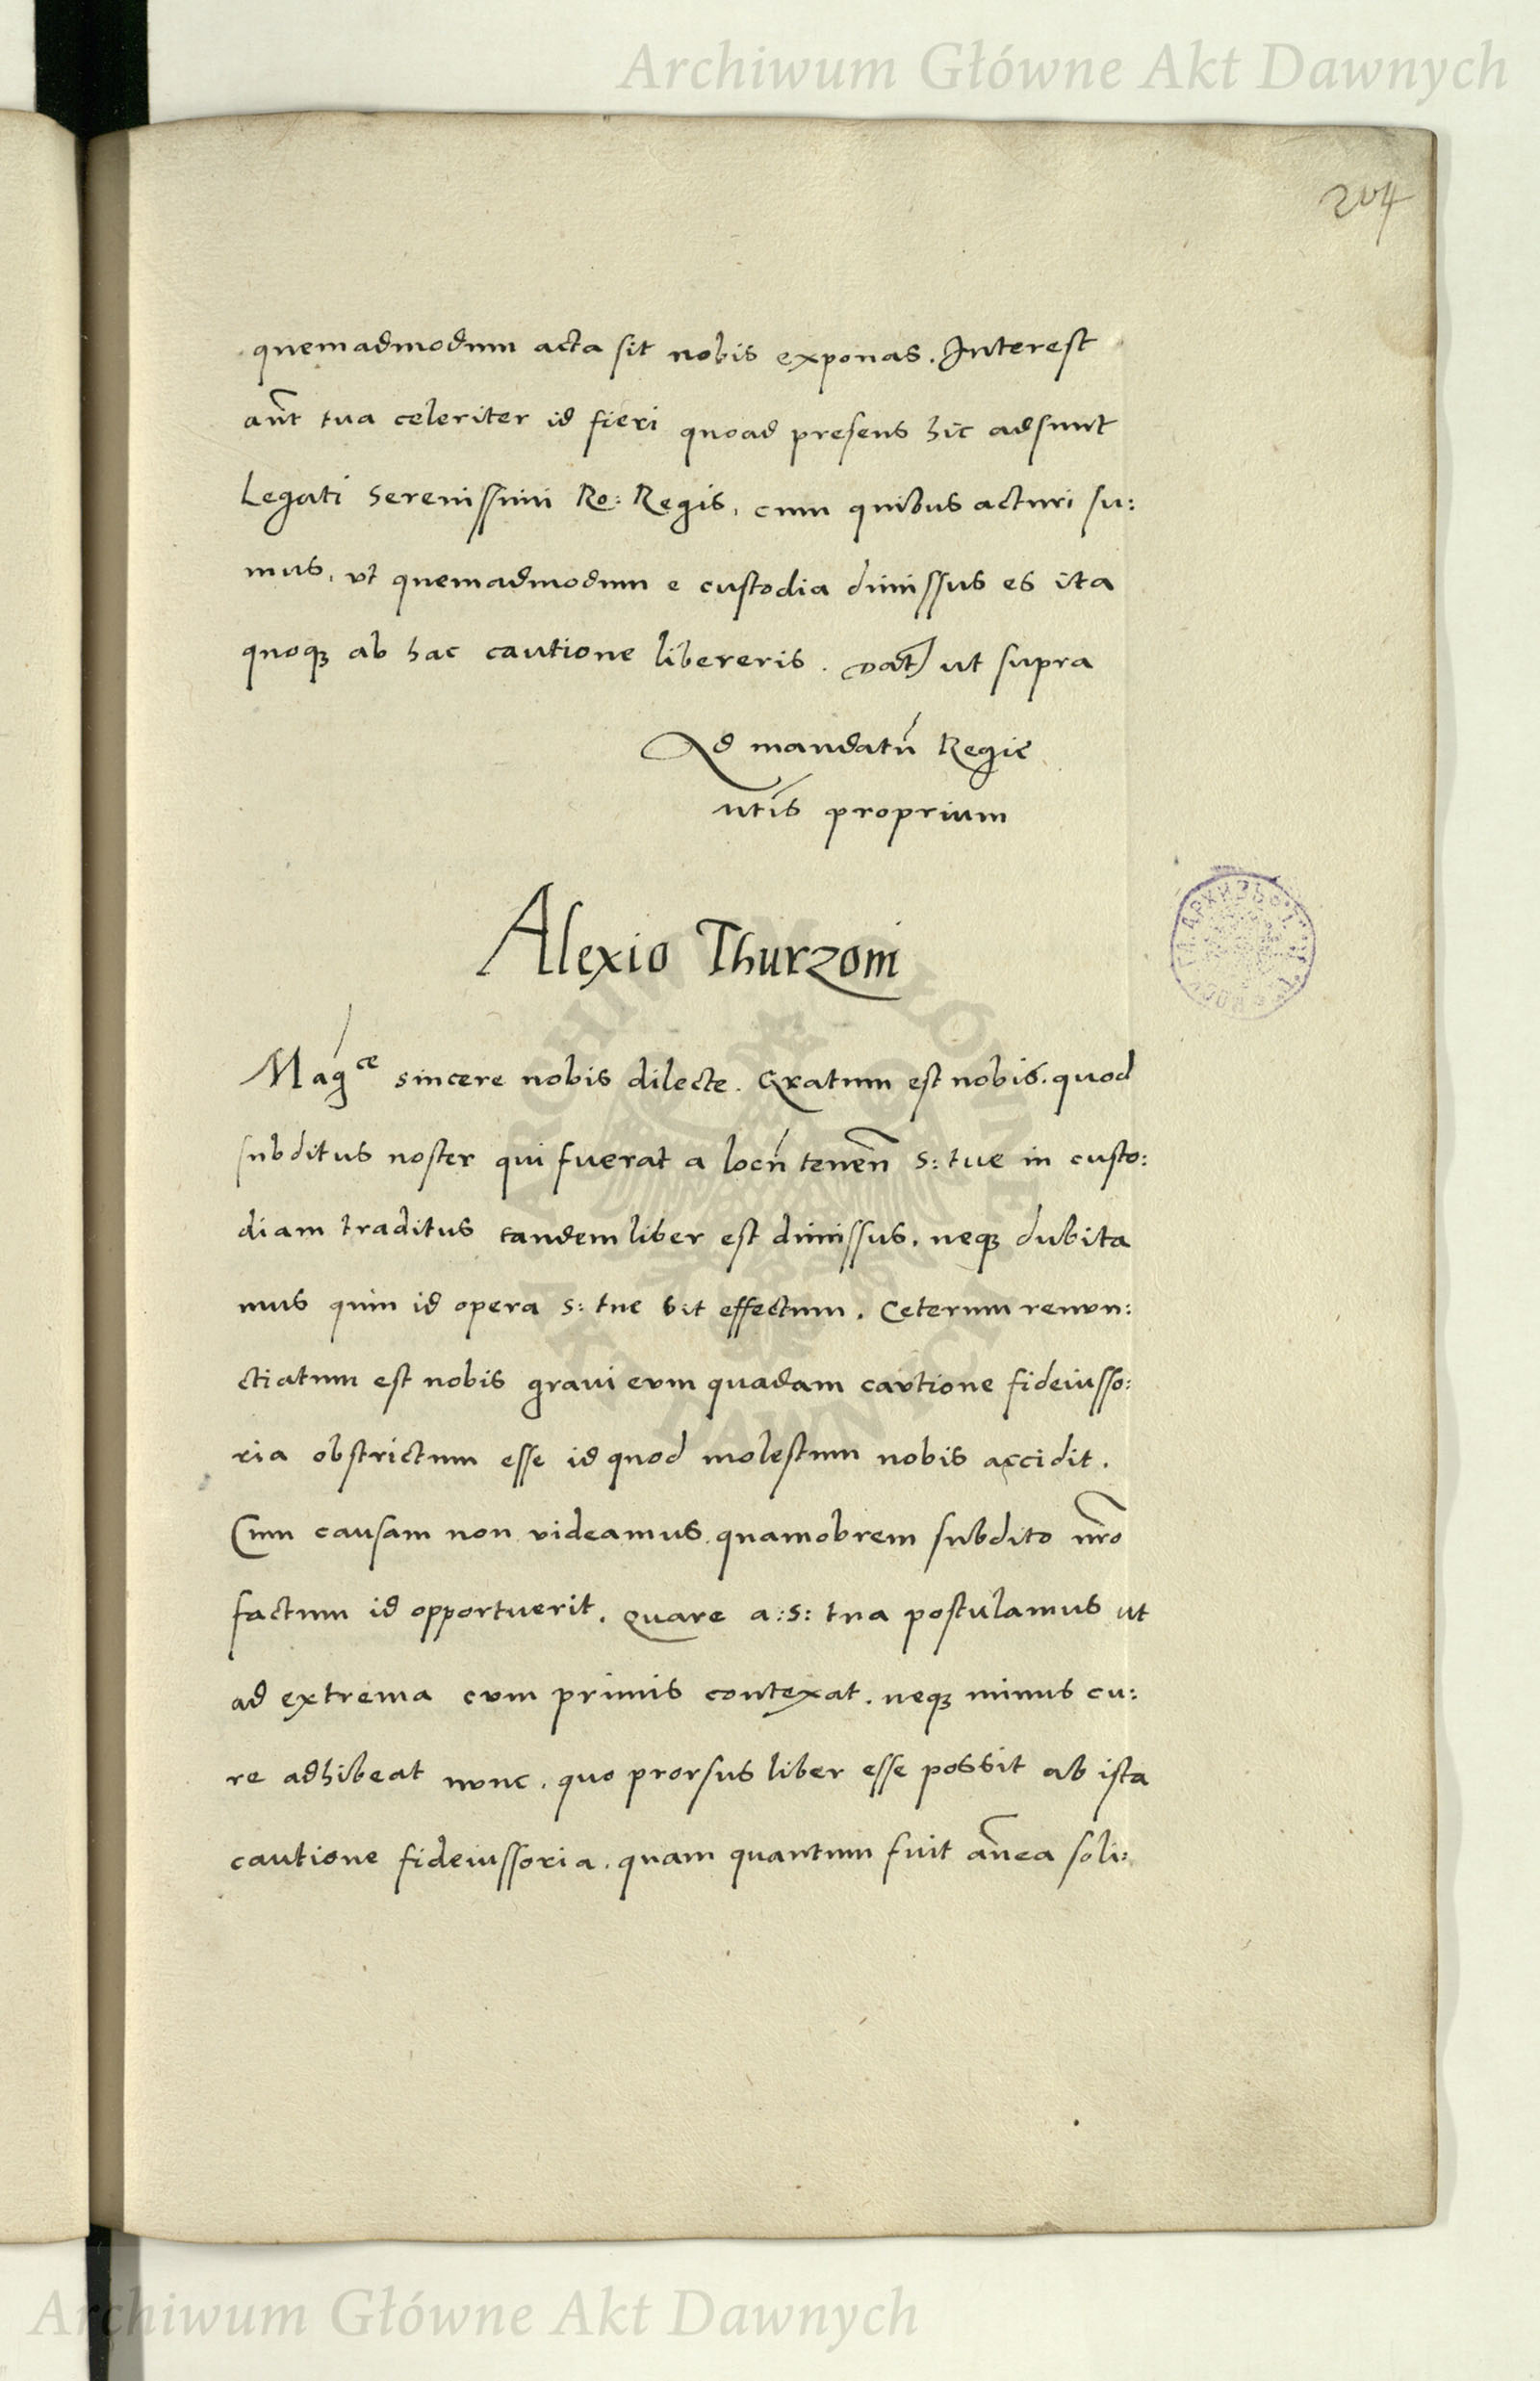 Archiwum Główne Akt Dawnych
204
quemadmodum acta sit nobis exponas. Interest
aut̃ tua celeriter id fieri quoad presens hic adsunt
Legati Serenissimi Ro: Regis, cum quibus acturi su:
mus, vt quemadmodum e custodia dimissus es ita
quoqꝫ ab hac cautione libereris. Dat̃ ut supra
Ad mandatũ Regie
mtis̃ proprium
Alexio Thurzoni
Mag̃ce sincere nobis dilecte. Gratum est nobis. quod
subditus noster qui fuerat a locũ tenen̄ S: tue in custo:
diam traditus tandem liber est dimissus, neqꝫ dubita
mus quin id opera S: tue sit effectum. Ceterum renun:
ctiatum est nobis graui eum quadam cautione fideiusso:
ria obstrictum esse id quod molestum nobis accidit.
Cum causam non videamus quamobrem subdito nr̃o
factum id opportuerit. Quare a: S: tua postulamus ut
ad extrema cum primis contexat, neqꝫ minus cu:
re adhibeat nunc, quo prorsus liber esse possit ab ista
cautione fideiussoria, quam quantum fuit añea soli:
ARCHIWUM GŁÓWNE
AKT DAWNYCH
Archiwum Główne Akt Dawnych